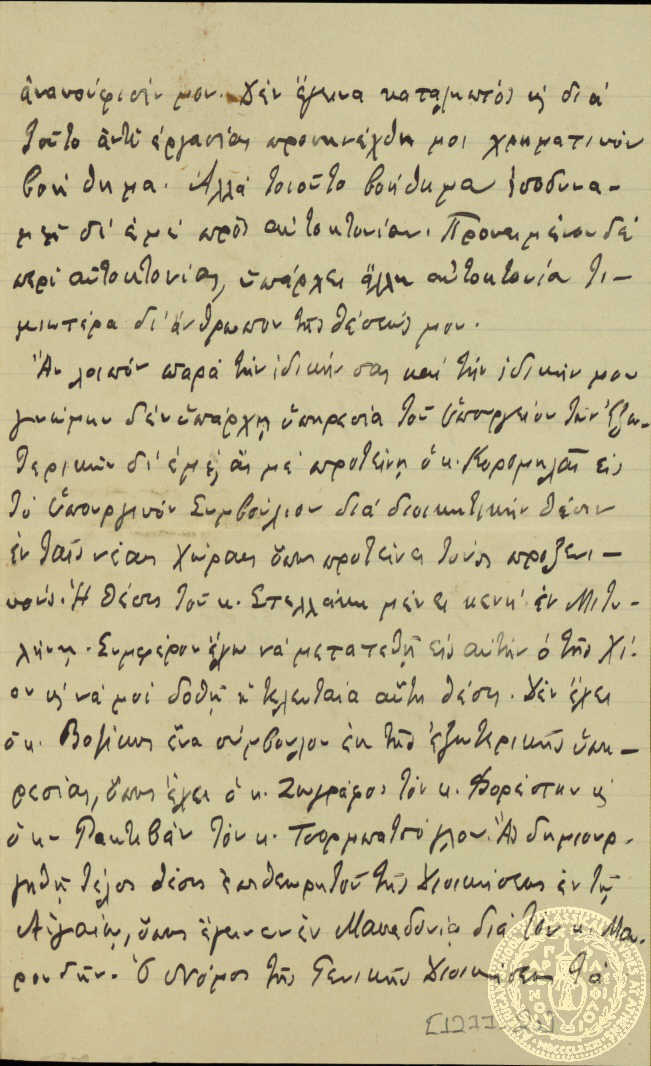 ἀνακούφισίν μου. Δὲν ἔγεινα κατανοητὸς κ' διὰ
τοῦτο ἀντὶ ἐργασίας προσηνέχθη μοι χρηματικὸν
βοήθημα. Ἀλλὰ τοιοῦτο βοήθημα ἰσοδυνα-
μεῖ δι' ἐμὲ πρὸς αὐτοκτονίαν. Προκειμένου δὲ
περὶ αὐτοκτονίας, ὑπάρχει ἄλλη αὐτοκτονία τι-
μιωτέρα δι' ἄνθρωπον τῆς θέσεώς μου.
Ἂν λοιπὸν παρὰ τὴν ἰδικήν σας καὶ τὴν ἰδικήν μου
γνώμην δὲν ὑπάρχῃ ὑπηρεσία τοῦ Ὑπουργείου τῶν Ἐξω-
τερικῶν δι' ἐμέ, ἂς μὲ προτείνῃ ὁ κ. Κορομηλᾶς εἰς
τὸ Ὑπουργικὸν Συμβούλιον διὰ διοικητικὴν θέσιν
ἐν ταῖς νέαις χώραις ὅπως προτείνει τοὺς προξενι-
κούς. Ἡ θέσις τοῦ κ. Στελλάκη μένει κενὴ ἐν Μιτυ-
λήνῃ. Συμφέρον ἔχω νὰ μετατεθῇ εἰς αὐτὴν ὁ τῆς Χί-
ου κ' νὰ μοὶ δοθῇ ἡ τελευταία αὕτη θέσις. Δὲν ἔχει
ὁ κ. Βοζίκης ἕνα σύμβουλον ἐκ τῆς ἐξωτερικῆς ὑπη-
ρεσίας, ὅπως ἔχει ὁ κ. Ζωγράφος τὸν κ. Φορέστην κ'
ὁ κ. Ρακτιβὰν τὸν κ. Τσορμπατσόγλου. Ἂς δημιουρ-
γηθῇ τέλος θέσις ἐπιθεωρητοῦ τῆς Διοικήσεως ἐν τῷ
Αἰγαίῳ, ὅπως ἔγεινεν ἐν Μακεδονίᾳ διὰ τὸν κ. Μα-
ρουδῆν. Ὁ Νόμος τῆς Γενικῆς Διοικήσεως τὰ